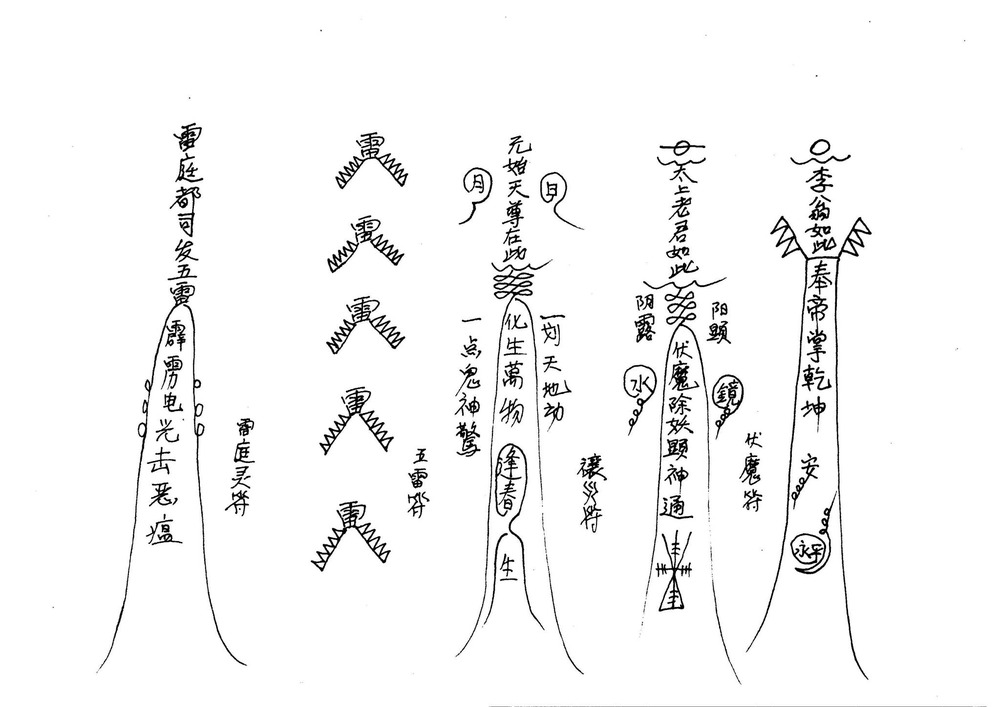 雷庭都司发五雷
霹雳电光击恶瘟
雷庭灵符
雷
雷
雷
雷
雷
五雷符
月
元始天尊在此
日
一点鬼神驚
化生萬物
一划天地动
逢春
生
禳災符
太上老君如此
阴露
阳顕
水
伏魔除妖顕神通
鏡
伏魔符
李翁如此
奉帝掌乾坤
安
永平